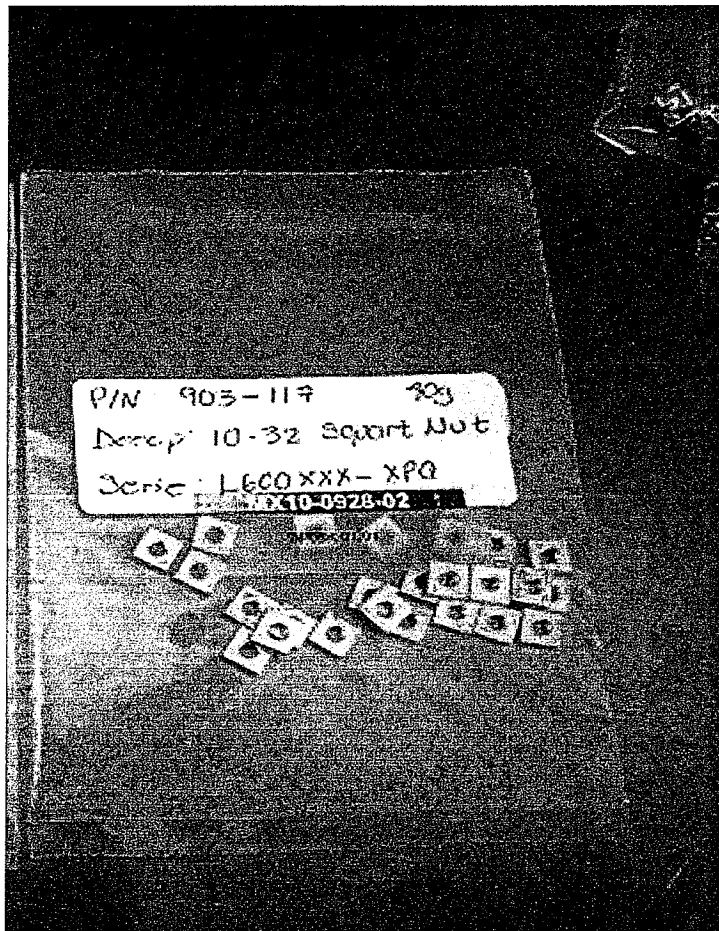 P/N 903-117
Descrip: 10-32 Squart Nut
Serie: L600XXX-XPQ
10-0928-02